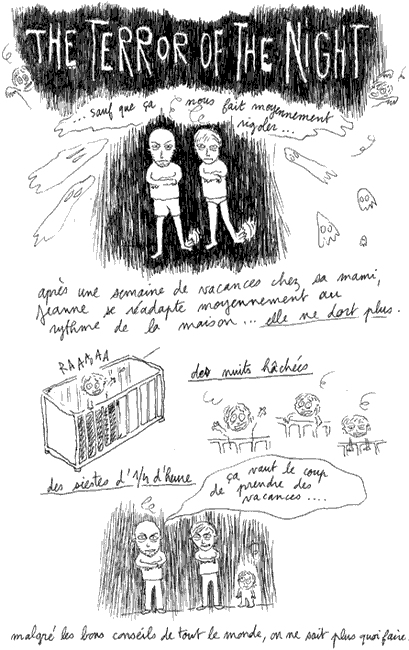 THE TERROR OF THE NIGHT
... sauf que ça nous fait moyennement
rigoler ...
après une semaine de vacances chez sa mami,
Jeanne se réadapte moyennement au
rythme de la maison ... elle ne dort plus.
RAAAAAA
des nuits hâchées
des siestes d'1/4 d'heure
ça vaut le coup
de prendre des
vacances ....
malgré les bons conseils de tout le monde, on ne sait plus quoi faire.